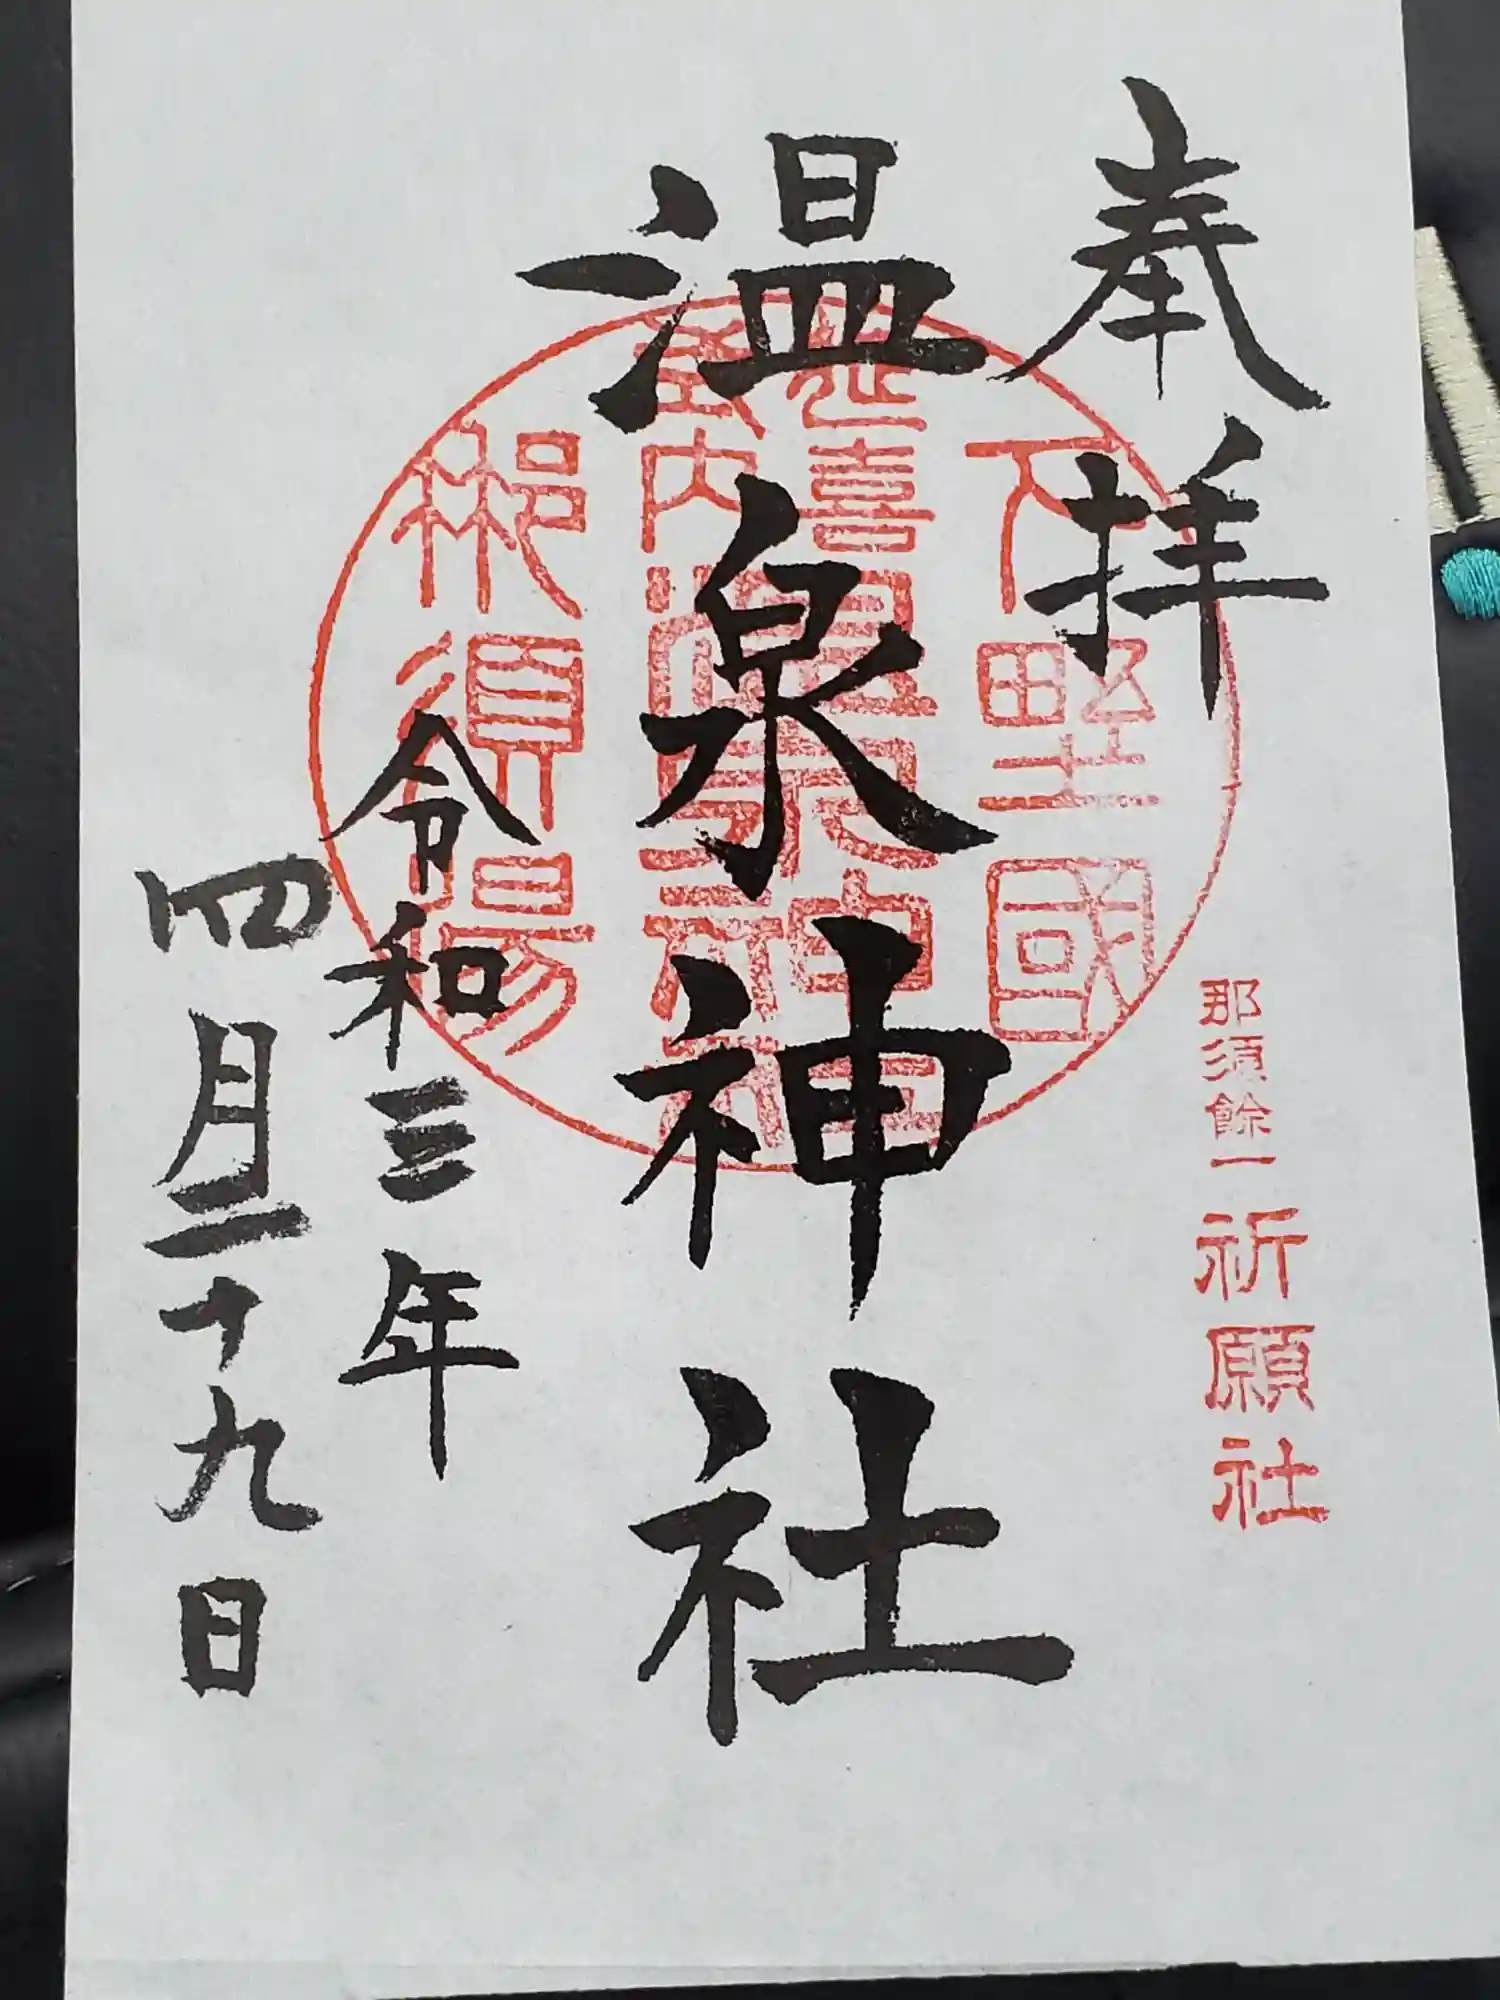 奉拝
那須餘一
祈願社
下野國
延喜
式内
温泉神社
那須湯
温泉神社
令和三年
四月二十九日